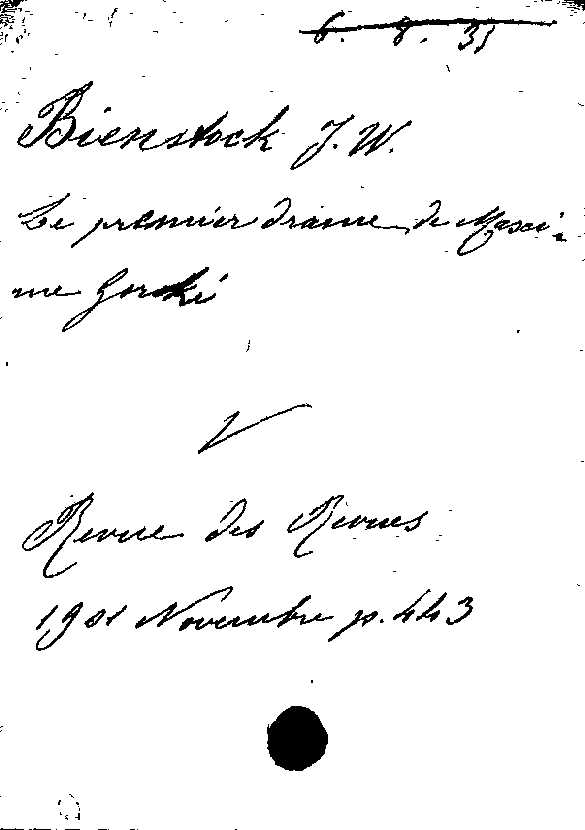 6. 8. 35
Bienstock J. W.
Le premier drame de Maxi-
me Gorki
Revue des Revues
1901 Novembre p. 443